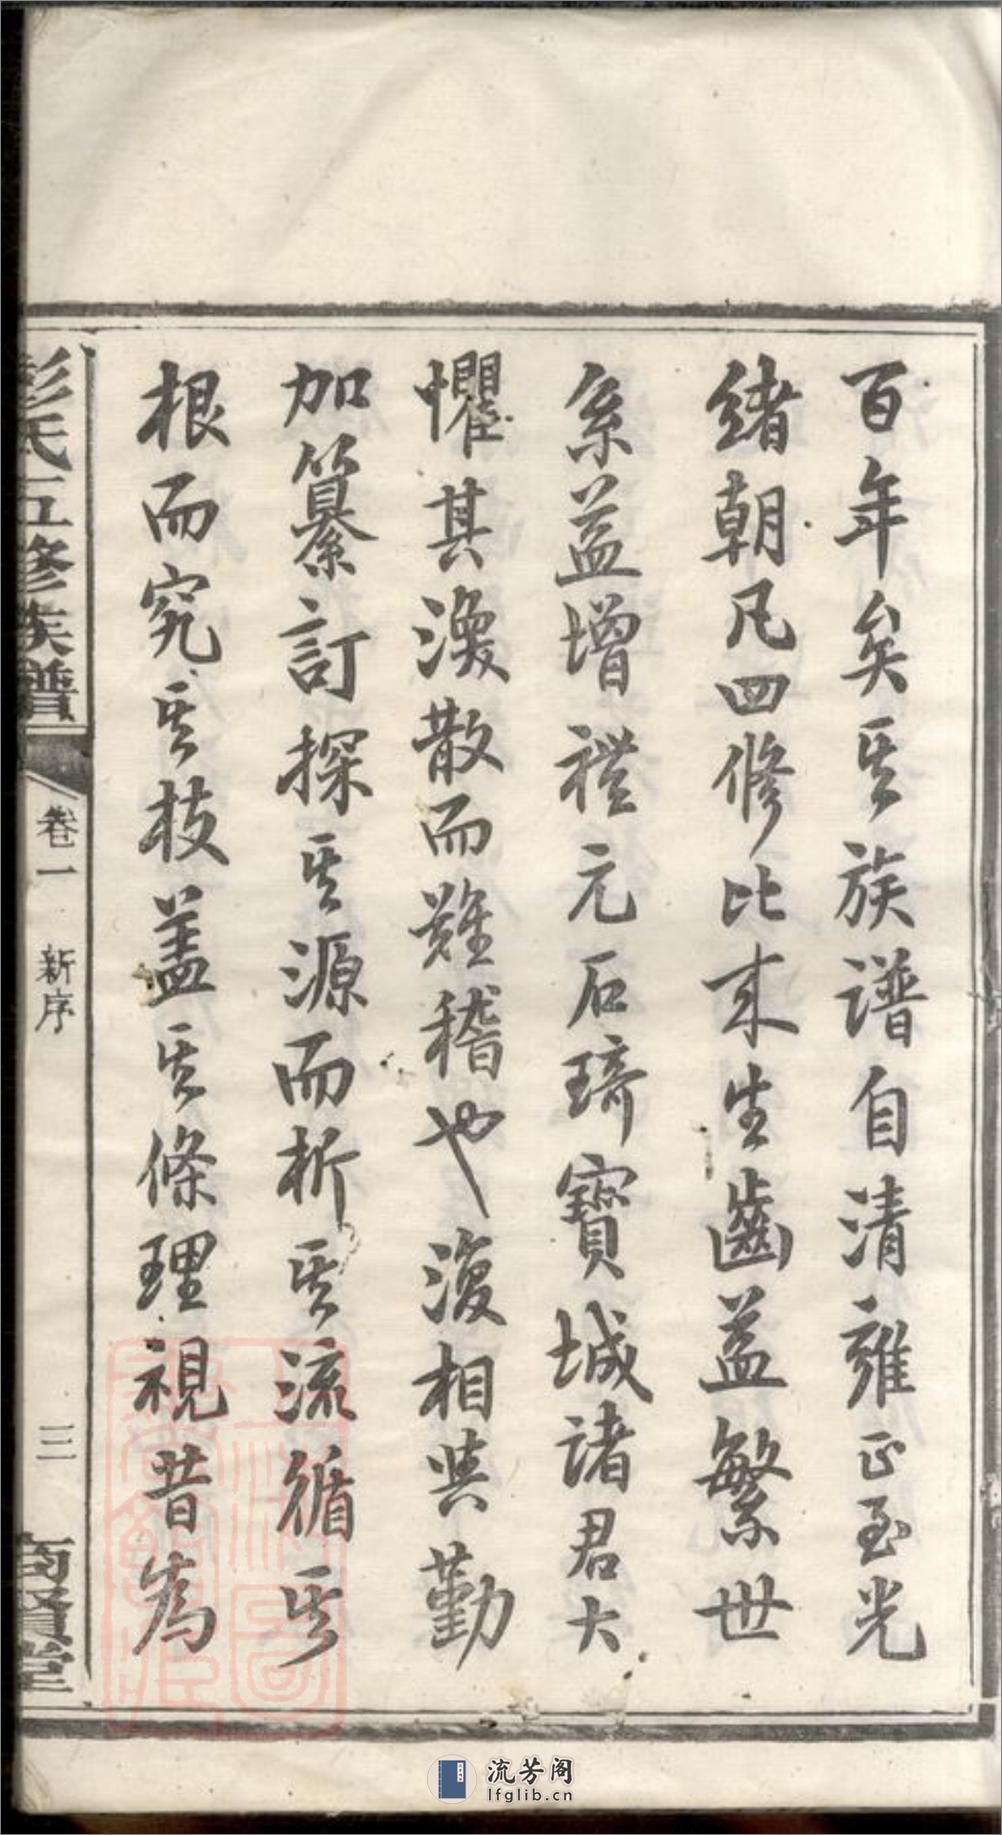 百年矣其族譜自清雍正至光
緒朝凡四修比来生齒益繁世
系益增禮元石琦寶城諸君大
懼其渙散而難稽也復相與勤
加纂訂探其源而析其流循其
根而究其枝盖其條理視昔為
彭氏五修族譜
卷一 新序
三
商賢堂
流芳阁
lfglib.cn